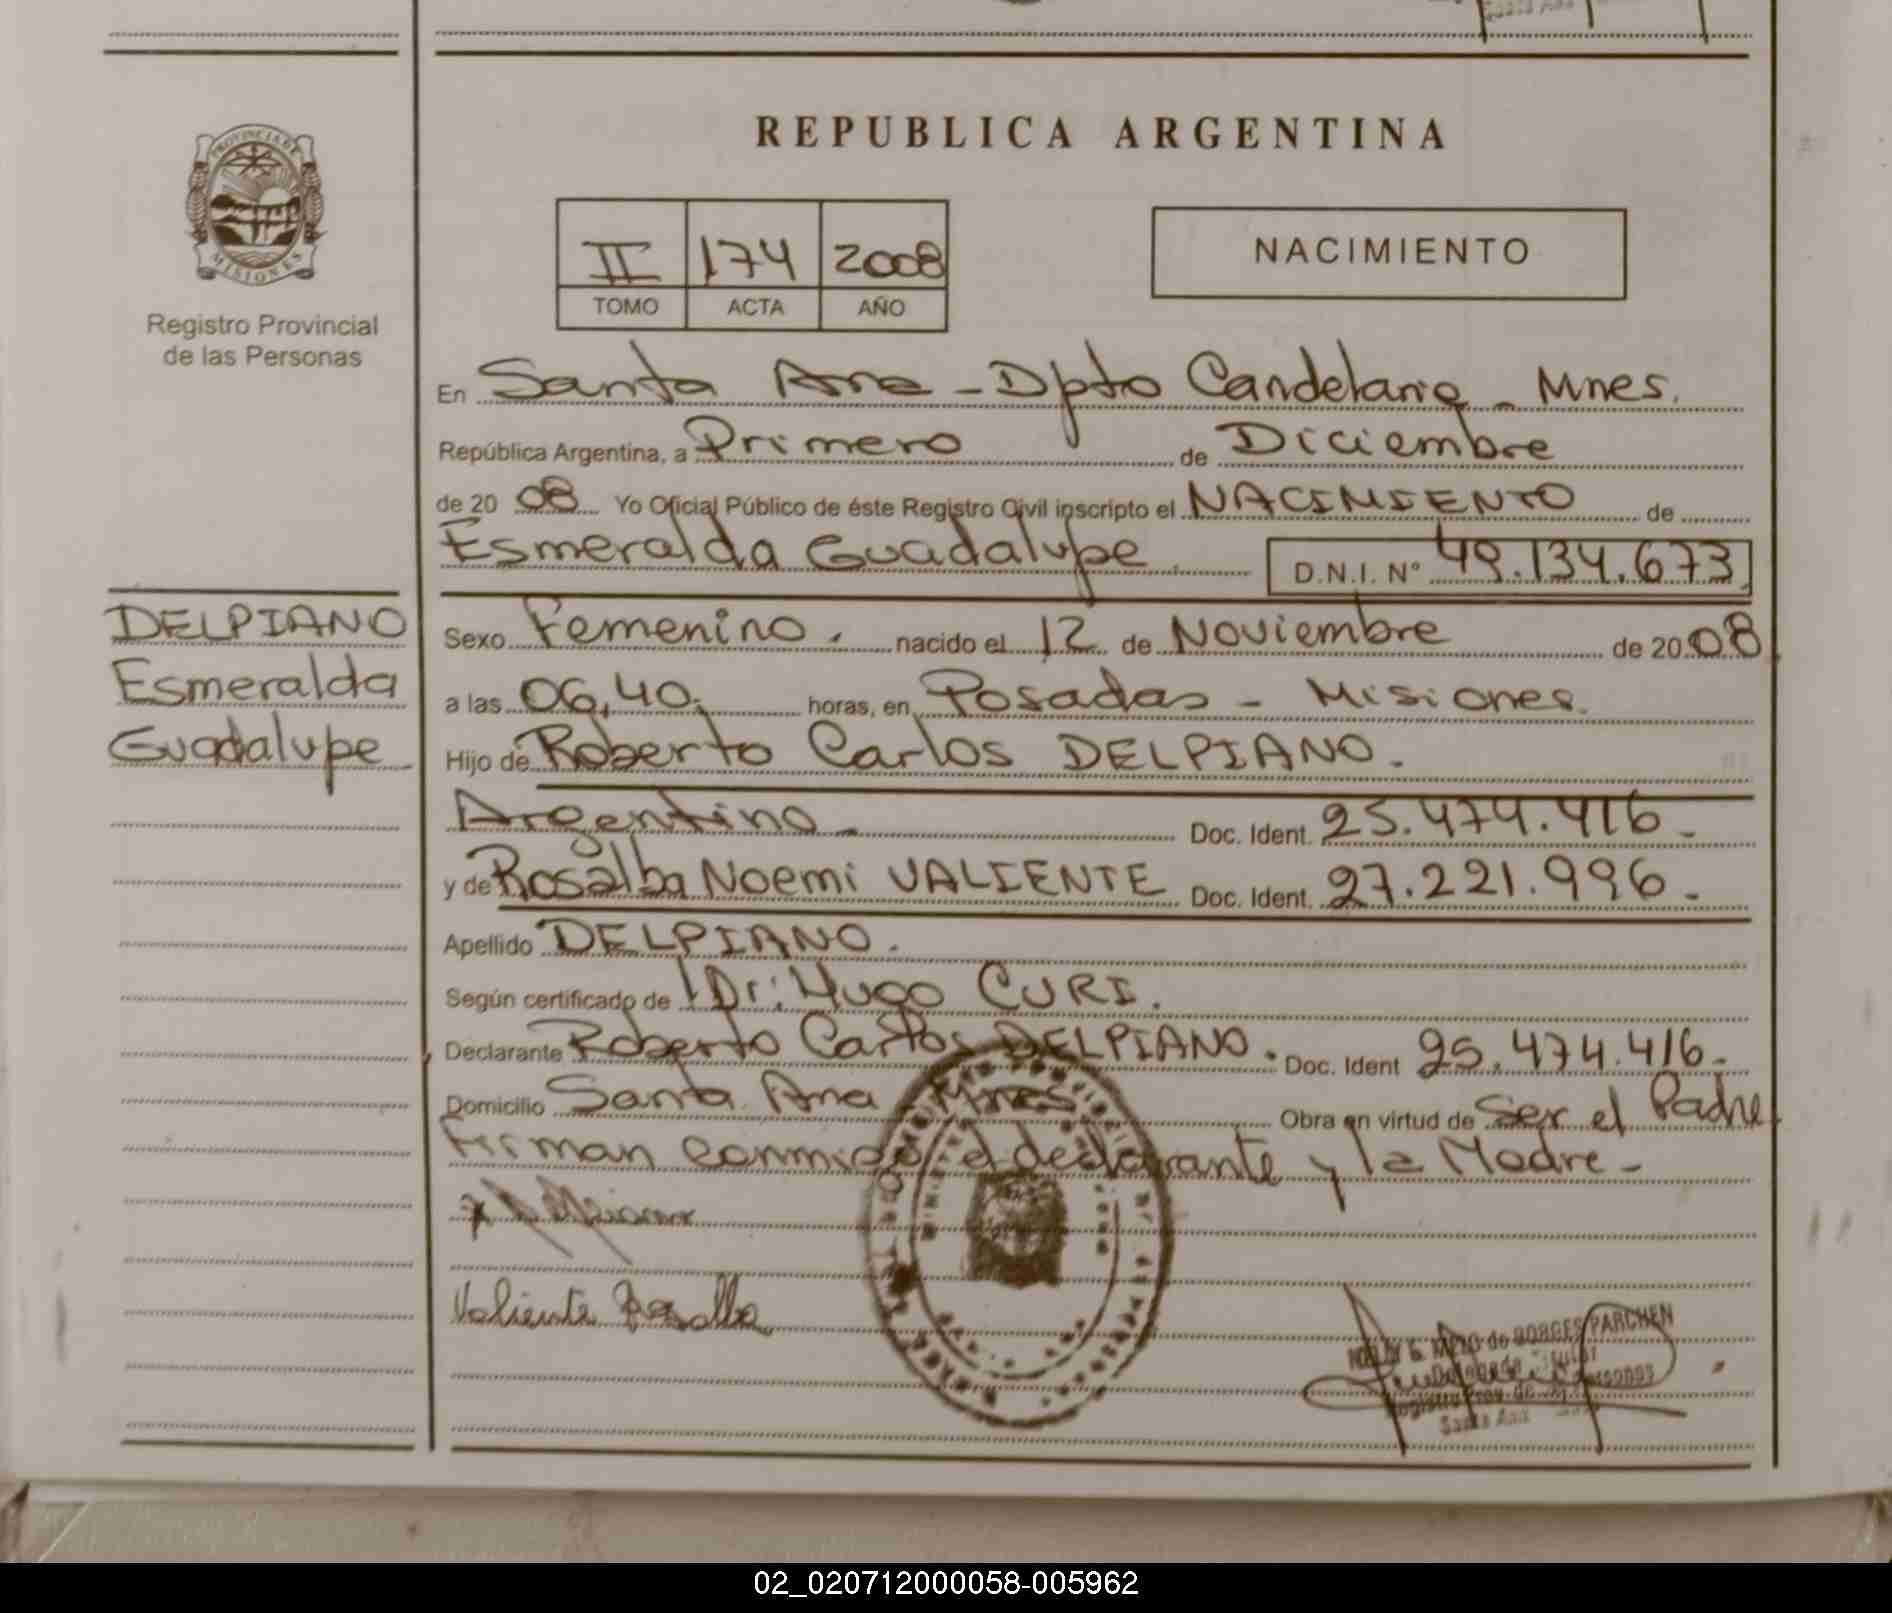 PROVINCIA DE
MISIONES
Registro Provincial
de las Personas
REPUBLICA ARGENTINA
II 174 2008
TOMO ACTA AÑO
NACIMIENTO
En Santa Ana - Dpto Candelaria - Mnes.
República Argentina, a Primero de Diciembre
de 2008 Yo Oficial Público de éste Registro Civil inscripto el NACIMIENTO de
Esmeralda Guadalupe D.N.I. N° 49.134.673
DELPIANO
Esmeralda
Guadalupe
Sexo Femenino. nacido el 12 de Noviembre de 2008
a las 06,40. horas, en Posadas - Misiones.
Hijo de Roberto Carlos DELPIANO.
Argentino - Doc. Ident. 25.474.416 -
y de Rosalba Noemi VALIENTE Doc. Ident. 27.221.996 -
Apellido DELPIANO.
Según certificado de Dr: Hugo CURI.
Declarante Roberto Carlos DELPIANO. Doc. Ident 25.474.416 -
Domicilio Santa Ana Mnes Obra en virtud de Ser el Padre
Firman conmigo el declarante y la Madre -
Valiente Rosalba
de BORGES PARCHEN
Delegada Titular
Registro Prov. de las Personas
Santa Ana
02_020712000058-005962